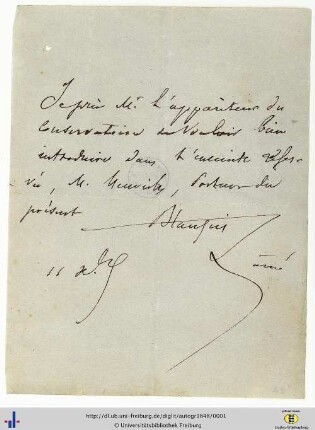 Je prie Mr. l'appariteur du
Conservatoire de Vouloir bien
introduire dans l'enceinte réser-
vée, M. porteur du
présent
11 Xbre
http://dl.ub.uni-freiburg.de/diglit/autogr184870001
© Universitätsbibliothek Freiburg